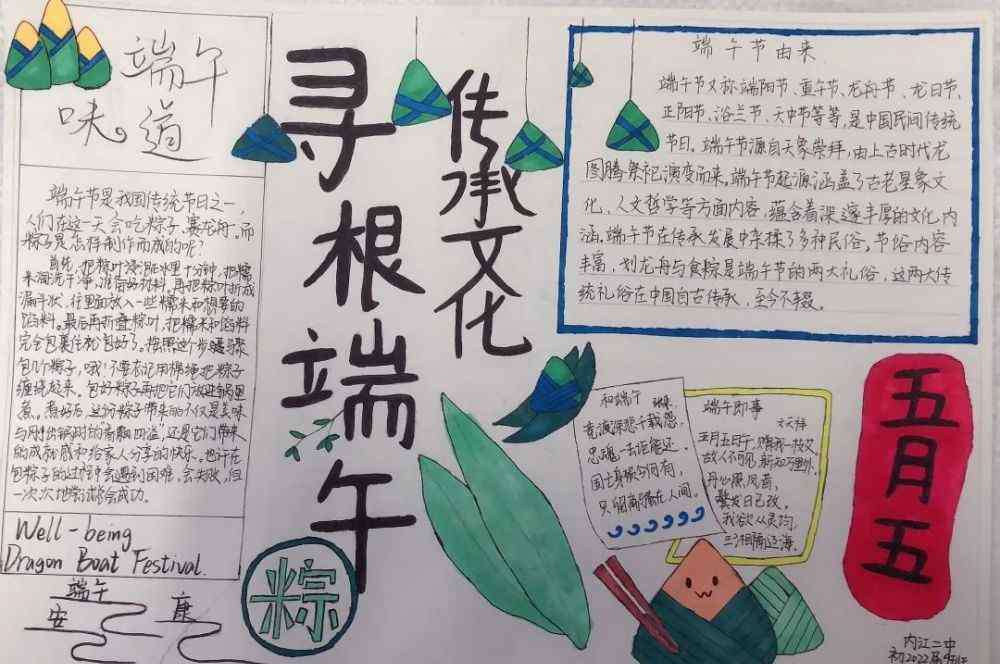 端午
味道
端午节是我国传统节日之一,
人们在这一天会吃粽子、赛龙舟。而
粽子是怎样制作而成的呢?
首先,把粽叶浸泡在水里十分钟,把糯
米淘洗干净,准备好材料,再把粽叶折成
漏斗状,往里面放入一些糯米和想要的
馅料。最后再折叠粽叶,把糯米和馅料
完全包裹住就包好了。按照这个步骤
包几个粽子,哦!不要忘记用棉绳把粽子
缠绕起来。包好粽子再把它们放进锅里
煮。煮好后,这份粽子带来的不仅是美味
与刚出锅时的香飘四溢,还是它们带来
的成就感和给家人分享的快乐。也许在
包粽子的过程中会遇到困难,会失败,但
一次次地尝试都会成功。
Well-being
Dragon Boat Festival.
端午
安 康
寻根端午
传承文化
粽
端午节由来
端午节又称端阳节、重午节、龙舟节、龙日节、
正阳节、浴兰节、天中节等等,是中国民间传统
节日。端午节源自天象崇拜,由上古时代龙
图腾祭祀演变而来。端午节起源涵盖了古老星象文
化、人文哲学等方面内容,蕴含着深邃丰厚的文化内
涵。端午节在传承发展中杂揉了多种民俗,节俗内容
丰富,划龙舟与食粽是端午节的两大礼俗,这两大传
统礼俗在中国自古传承,至今不辍。
和端午
竞渡深悲千载冤,
忠魂一去讵能还。
国亡身殒今何有,
只留离骚在人间。
端午即事
文天祥
五月五日午,赠我一枝艾。
故人不可见,新知万里外。
丹心照夙昔,
鬓发日已改。
我欲从灵均,
三湘隔辽海。
五月五
内江二中
初2022届